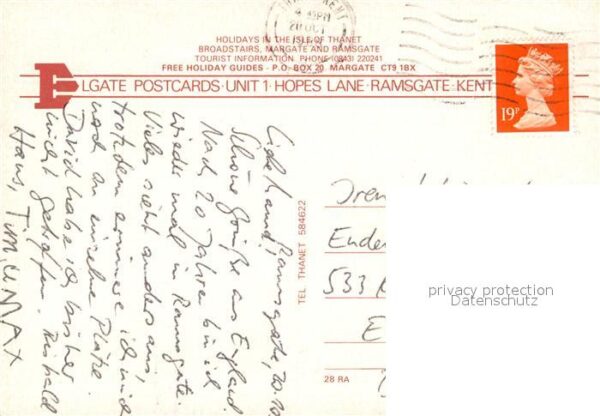 HOLIDAYS IN THE ISLE OF THANET
BROADSTAIRS, MARGATE AND RAMSGATE
TOURIST INFORMATION PHONE (0843) 220241
FREE HOLIDAY GUIDES · P.O. BOX 20 MARGATE CT9 1BX
ELGATE POSTCARDS · UNIT 1 · HOPES LANE · RAMSGATE · KENT
19P
Ramsgate, 20.10.
Schöne Grüße aus England.
Nach 20 Jahren bin ich
wieder mal in Ramsgate.
Vieles sieht anders aus,
trotzdem erinnere ich mich
noch an einzelne Plätze.
David habe ich bisher
nicht getroffen.
Hans, Tim u. MAX
TEL. THANET 584622
28 RA
Enden
533
E
privacy protection
Datenschutz